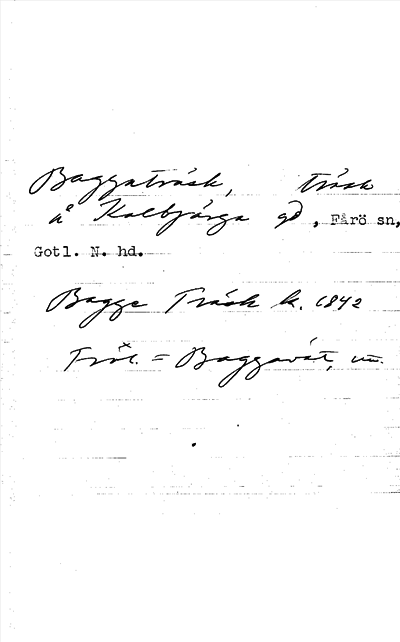 Baggaträsk, träsk
å Kalbjärga gd, Fårö sn,
Gotl. N. hd.
Bagge Träsk k. 1842
= Baggavät,